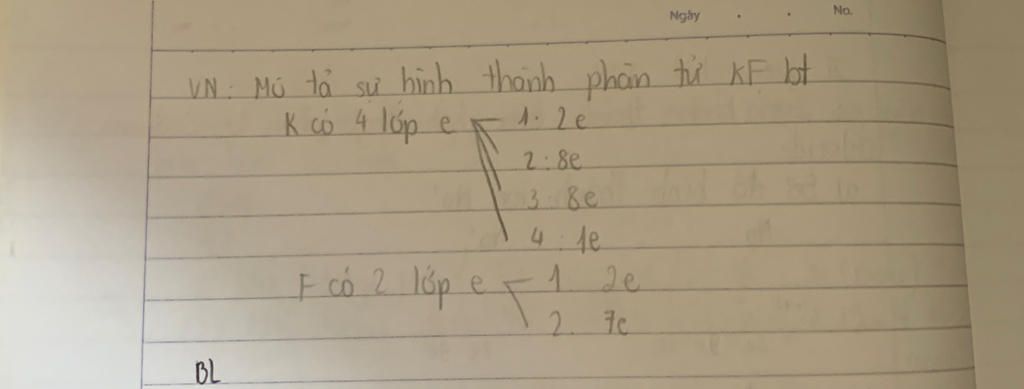 Ngày . . No.
VN: Mô tả sự hình thành phân tử KF bt
K có 4 lớp e 1. 2e
2: 8e
3: 8e
4: 1e
F có 2 lớp e 1. 2e
2. 7e
BL